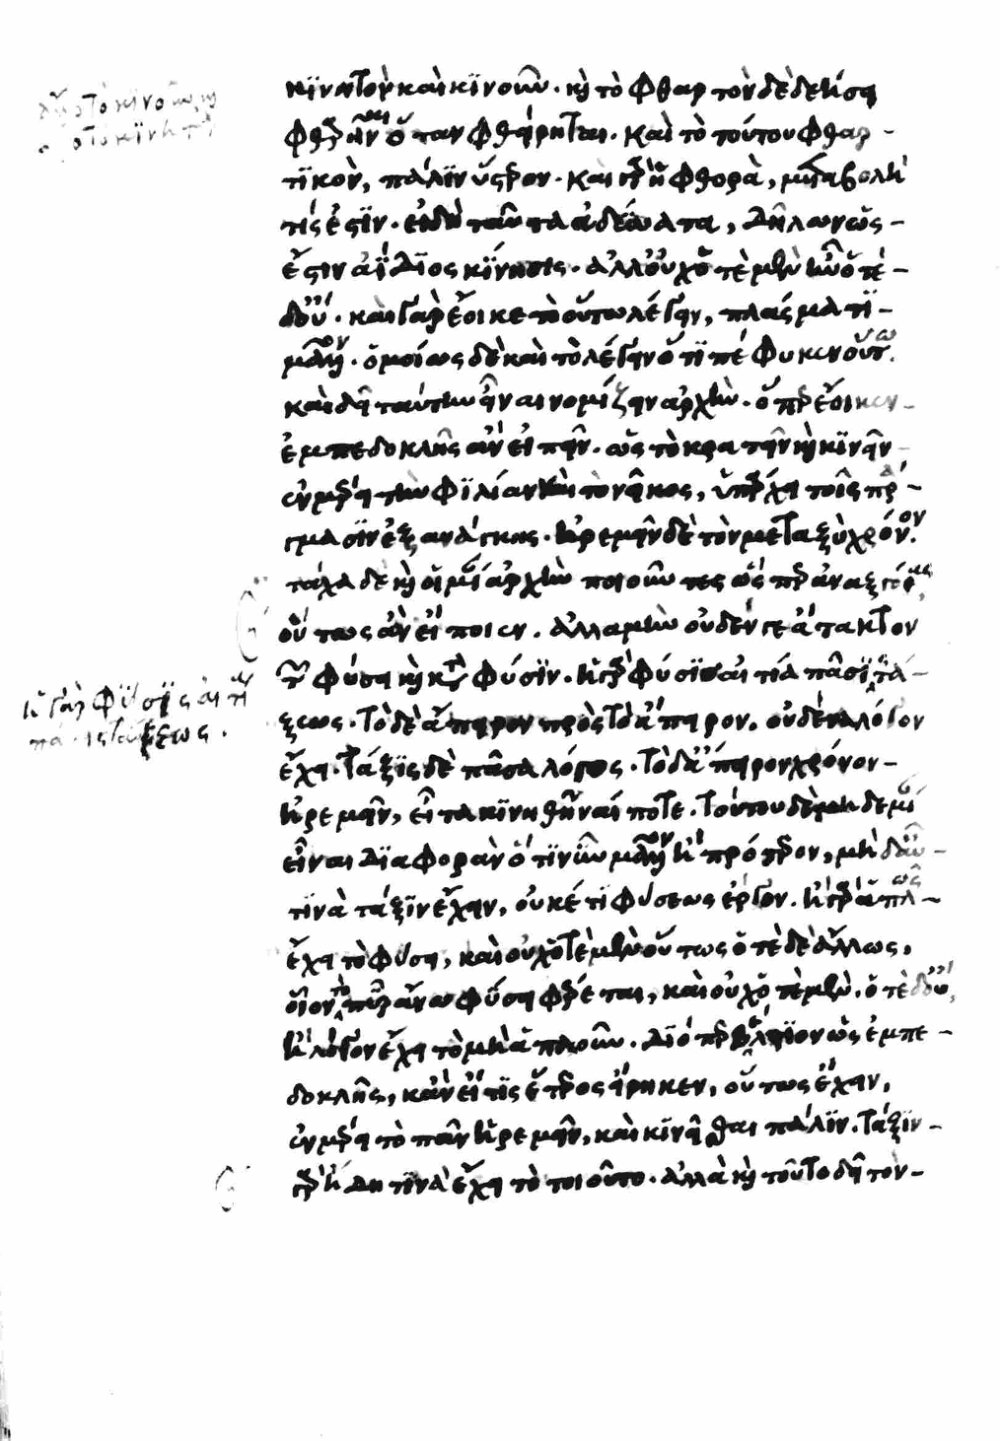 κϊνητὸν καὶ κϊνοῦν. κ(αὶ) τὸ φθαρτὸν δὲ δεήσει
φθαρῆναι ὅταν φθείρηται. καὶ τὸ τούτου φθαρ-
τϊκὸν, πάλϊν ὕστερον. καὶ γὰρ ἡ φθορὰ, μεταβολή
τίς ἐστϊν. εἰ δὴ ταῦτα ἀδύνατα, δῆλον ὡς
ἔστιν ἀΐδϊος κΐνησις. ἀλλ' οὐχ' ὁτὲ μὲν ἦν ὁτὲ
δ' οὔ. καὶ γὰρ ἔοικε τὸ οὕτω λέγειν, πλάσματϊ
μᾶλλον. ὁμοίως δὲ καὶ τὸ λέγειν ὅτϊ πέφυκεν οὕτως.
καὶ δεῖ ταύτην εἶναι νομίζειν ἀρχήν. ὅπερ ἔοικεν
ἐμπεδοκλῆς ἂν εἰπεῖν. ὡς τὸ κρατεῖν κ(αὶ) κϊνεῖν
ἐν μέρει τὴν φϊλίαν καὶ τὸ νεῖκος, ὑπάρχει τοῖς πρά-
γμασϊν ἐξ ἀνάγκης. ἠρεμεῖν δὲ τὸν μεταξὺ χρόνον.
τάχα δὲ κ(αὶ) οἱ μίαν ἀρχὴν ποιοῦντες ὥσπερ ἀναξαγόρας,
οὕτως ἂν εἴποιεν. ἀλλὰ μὴν οὐδέν γε ἄτακτον
τῶν φύσει κ(αὶ) κατὰ φύσϊν. ἡ γὰρ φύσϊς αἰτία πᾶσϊ τά-
ξεως. τὸ δὲ ἄπειρον πρὸς τὸ ἄπειρον, οὐδένα λόγον
ἔχει. τάξϊς δὲ πᾶσα λόγος. τὸ δ' ἄπειρον χρόνον
ἠρεμεῖν, εἶτα κϊνηθῆναί ποτε. τούτου δὲ μηδεμίαν
εἶναι δϊαφορὰν ὅτϊ νῦν μᾶλλον ἢ πρότερον, μὴ δ' αὖ
τϊνὰ τάξϊν ἔχειν, οὐκέτϊ φύσεως ἔργον. ἢ γὰρ ἁπλῶς
ἔχει τὸ φύσει, καὶ οὐχ' ὁτὲ μὲν οὕτως ὁτὲ δὲ ἄλλως,
οἷον τὸ πῦρ ἄνω φύσει φέρεται, καὶ οὐχ' ὁτὲ μὲν. ὁτὲ δ' οὔ,
ἢ λόγον ἔχει τὸ μὴ ἁπλοῦν. δϊόπερ βέλτϊον ὡς ἐμπε-
δοκλῆς, κἂν εἴ τϊς ἕτερος εἴρηκεν, οὕτως ἔχειν,
ἐν μέρει τὸ πᾶν ἠρεμεῖν, καὶ κϊνεῖσθαι πάλϊν. τάξϊν
γὰρ ἤδη τϊνὰ ἔχει τὸ τοιοῦτο. ἀλλὰ κ(αὶ) τοῦτο δεῖ τὸν
ἡ γὰρ φΰσϊς αἰτία
πάσης τάξεως.